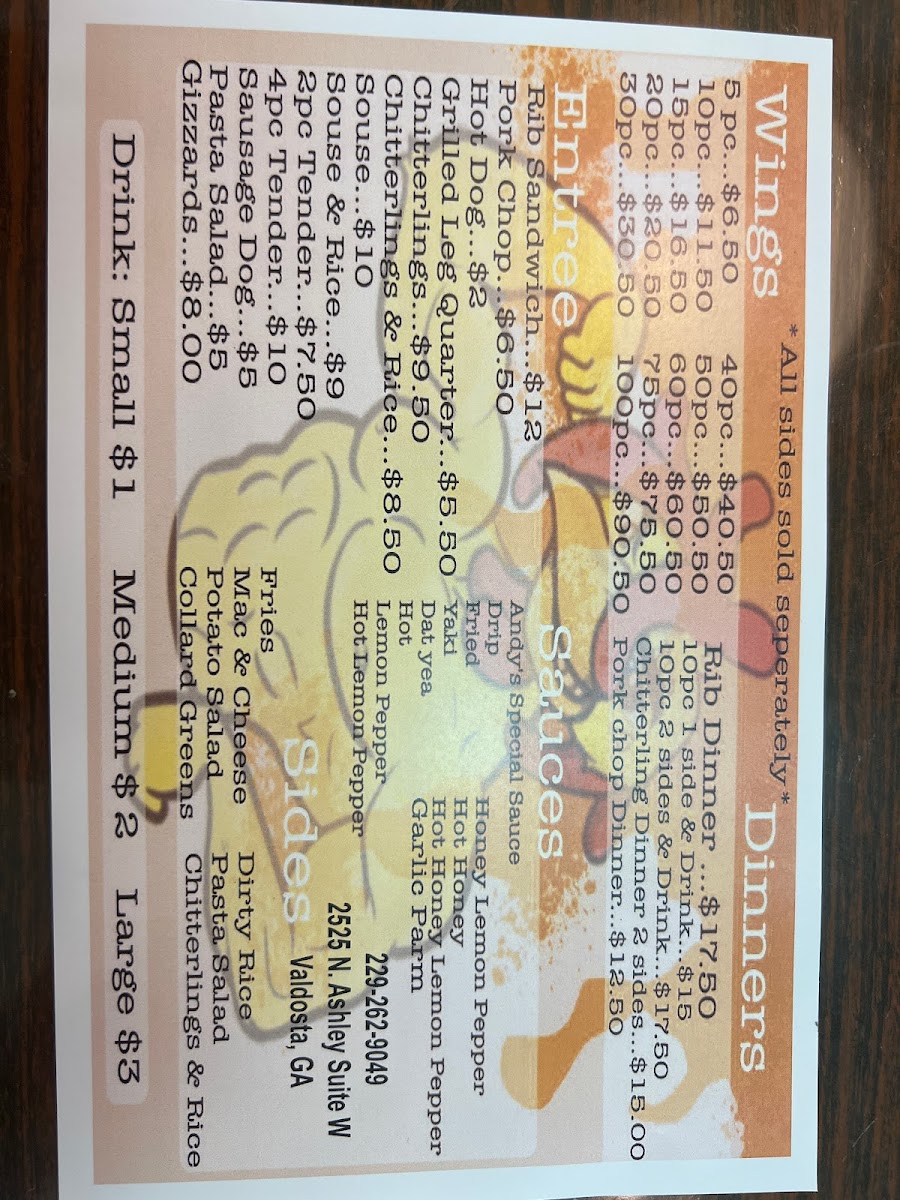 *All sides sold seperately*
Wings
5 pc...$6.50
10pc...$11.50
15pc...$16.50
20pc...$20.50
30pc...$30.50
40pc...$40.50
50pc...$50.50
60pc...$60.50
75pc...$75.50
100pc...$90.50
Dinners
Rib Dinner ....$17.50
10pc 1 side & Drink...$15
10pc 2 sides & Drink...$17.50
Chitterling Dinner 2 sides...$15.00
Pork chop Dinner...$12.50
Entree
Rib Sandwich...$12
Pork Chop...$6.50
Hot Dog...$2
Grilled Leg Quarter...$5.50
Chitterlings...$9.50
Chitterlings & Rice...$8.50
Souse...$10
Souse & Rice...$9
2pc Tender...$7.50
4pc Tender...$10
Sausage Dog...$5
Pasta Salad...$5
Gizzards...$8.00
Sauces
Andy's Special Sauce
Drip
Fried
Yaki
Dat yea
Hot
Lemon Pepper
Hot Lemon Pepper
Honey Lemon Pepper
Hot Honey
Hot Honey Lemon Pepper
Garlic Parm
229-262-9049
2525 N. Ashley Suite W
Valdosta, GA
Sides
Fries
Mac & Cheese
Potato Salad
Collard Greens
Dirty Rice
Pasta Salad
Chitterlings & Rice
Drink: Small $1 Medium $2 Large $3